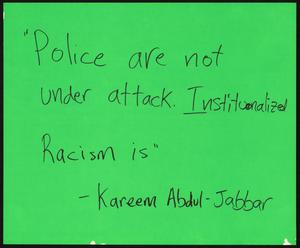 "Police are not
under attack. Institutionalized
Racism is"
- Kareem Abdul-Jabbar